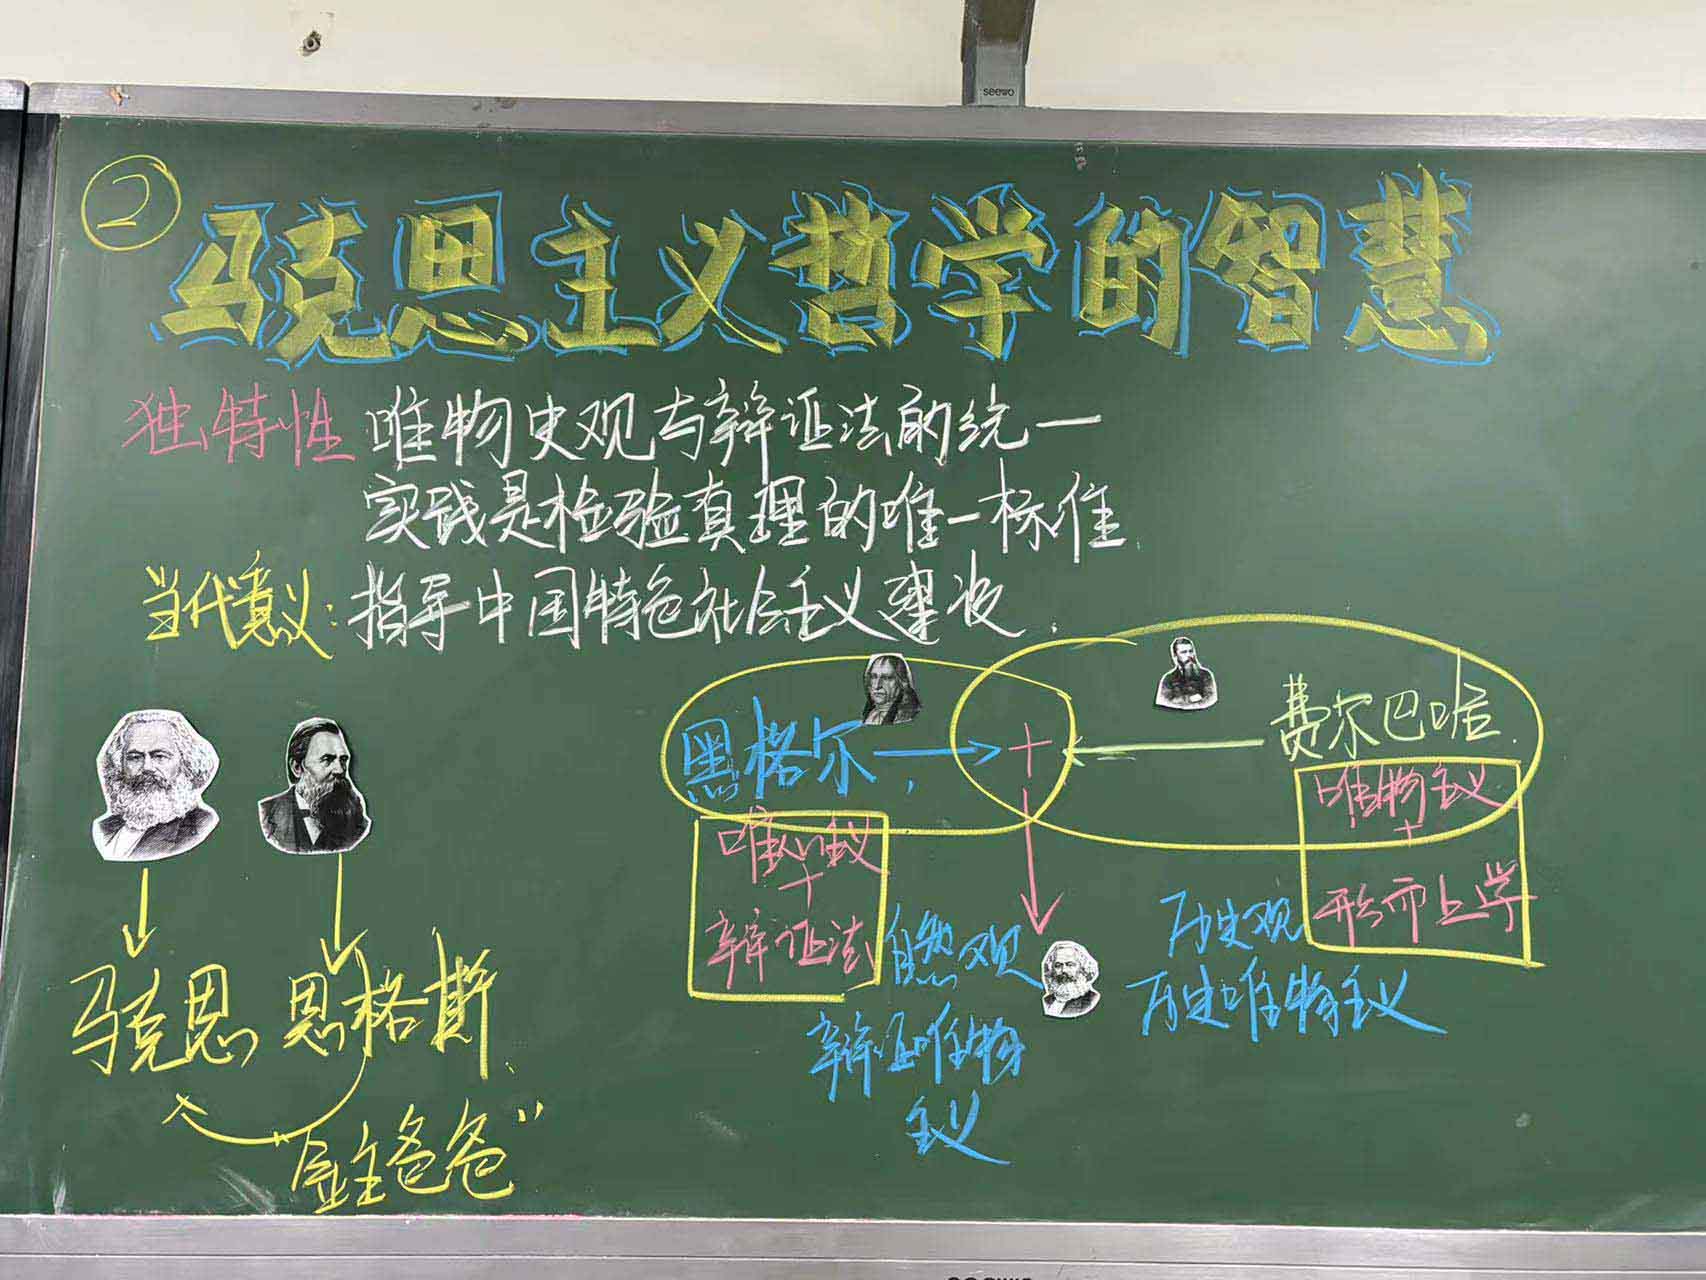 seewo
②
马克思主义哲学的智慧
独特性 唯物史观与辩证法的统一
实践是检验真理的唯一标准.
当代意义: 指导中国特色社会主义建设.
黑格尔 → + ← 费尔巴哈.
唯心主义
+
辩证法
唯物主义
+
形而上学
自然观
辩证唯物
主义
历史观
历史唯物主义
马克思 恩格斯.
"金主爸爸"